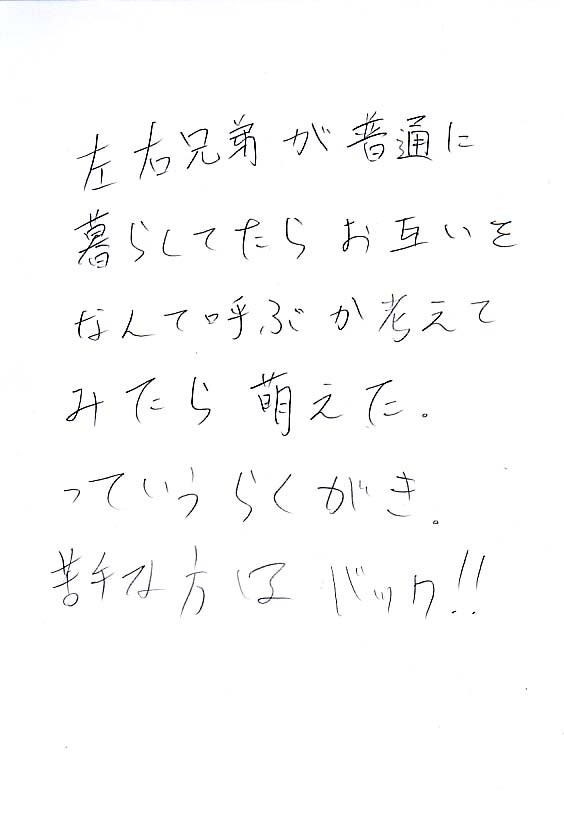 左右兄弟が普通に
暮らしてたらお互いを
なんて呼ぶか考えて
みたら萌えた。
っていうらくがき。
苦手な方はバック!!